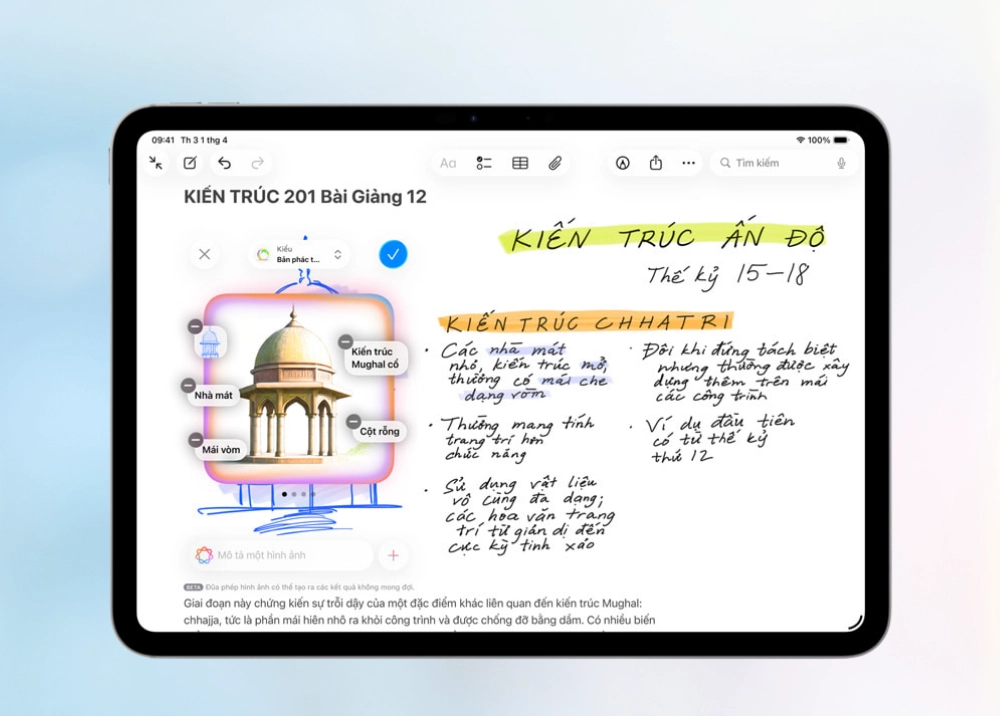 09:41 Th 3 1 thg 4
100%
Aa
Tìm kiếm
KIẾN TRÚC 201 Bài Giảng 12
Kiểu
Bản phác t...
Kiến trúc
Mughal cổ
Nhà mát
Cột rỗng
Mái vòm
Mô tả một hình ảnh
BETA Đũa phép hình ảnh có thể tạo ra các kết quả không mong đợi.
KIẾN TRÚC ẤN ĐỘ
Thế kỷ 15-18
KIẾN TRÚC CHHATRI
• Các nhà mát
nhỏ, kiến trúc mở,
thường có mái che
dạng vòm
• Thường mang tính
trang trí hơn
chức năng
• Sử dụng vật liệu
vô cùng đa dạng;
các hoa văn trang
trí từ giản dị đến
cực kỳ tinh xảo
• Đôi khi đứng tách biệt
nhưng thường được xây
dựng thêm trên mái
các công trình
• Ví dụ đầu tiên
có từ thế kỷ
thứ 12
Giai đoạn này chứng kiến sự trỗi dậy của một đặc điểm khác liên quan đến kiến trúc Mughal:
chhajja, tức là phần mái hiên nhô ra khỏi công trình và được chống đỡ bằng dầm. Có nhiều biến